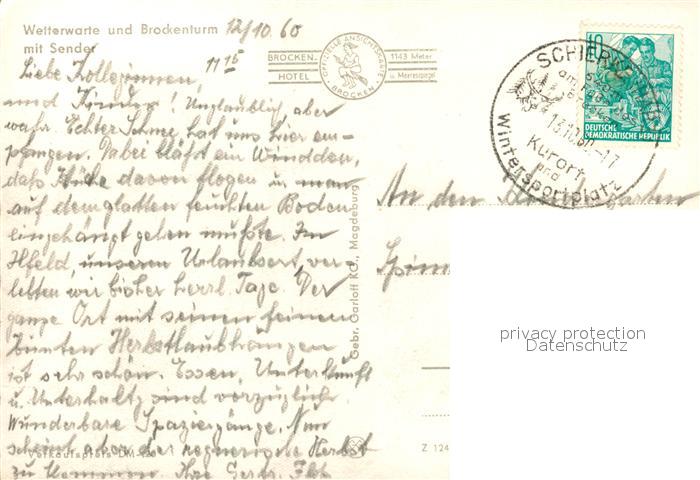 Wetterwarte und Brockenturm 12/10.60
mit Sender
11 15
BROCKEN-HOTEL
OFFIZIELLE ANSICHTSKARTE BROCKEN
1143 Meter
ü. Meeresspiegel
Liebe Kolleginnen,
und Kinder! Unglaublich aber
wahr. Echter Schnee hat uns hier em-
pfangen. Dabei bläst ein Wind den,
daß Hüte davon flogen u. man
auf dem glatten feuchten Boden
eingehängt gehen mußte. Im
Ilfeld, unseren Urlaubsort ver-
lebten wir bisher herrl. Tage. Der
ganze Ort mit seinen feinen
bunten Herbstlaubhängen
ist sehr schön. Essen, Unterkunft
u. Unterhaltg sind vorzüglich.
Wunderbare Spaziergänge. Nun
scheint aber der regnerische Herbst
zu kommen. Ihre
Verkaufspreis DM
Gebr. Garloff KG., Magdeburg
Z 124
SCHIERKE
13.10.60.-17
Kurort
und
Wintersportplatz
10
DEUTSCHE
DEMOKRATISCHE REPUBLIK
An den
privacy protection
Datenschutz